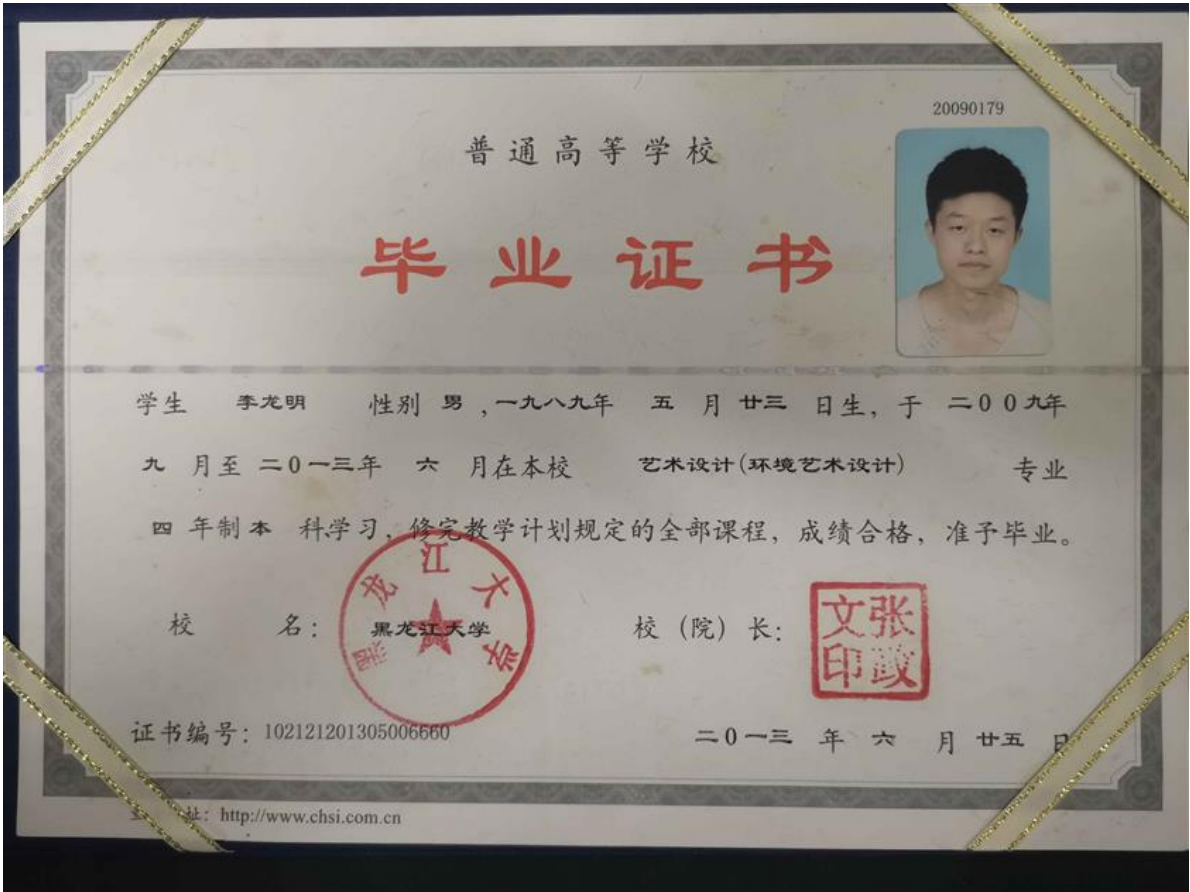 20090179
普通高等学校
毕业证书
学生 李龙明 性别 男 ,一九八九年 五 月 廿三 日生，于 二00九年
九 月至 二0一三年 六 月在本校 艺术设计(环境艺术设计) 专业
四 年制 本 科学习，修完教学计划规定的全部课程，成绩合格，准予毕业。
校 名： 黑龙江大学 校（院）长：
黑龙江大学
张政文印
证书编号：102121201305006660 二0一三 年 六 月 廿五 日
址：http://www.chsi.com.cn